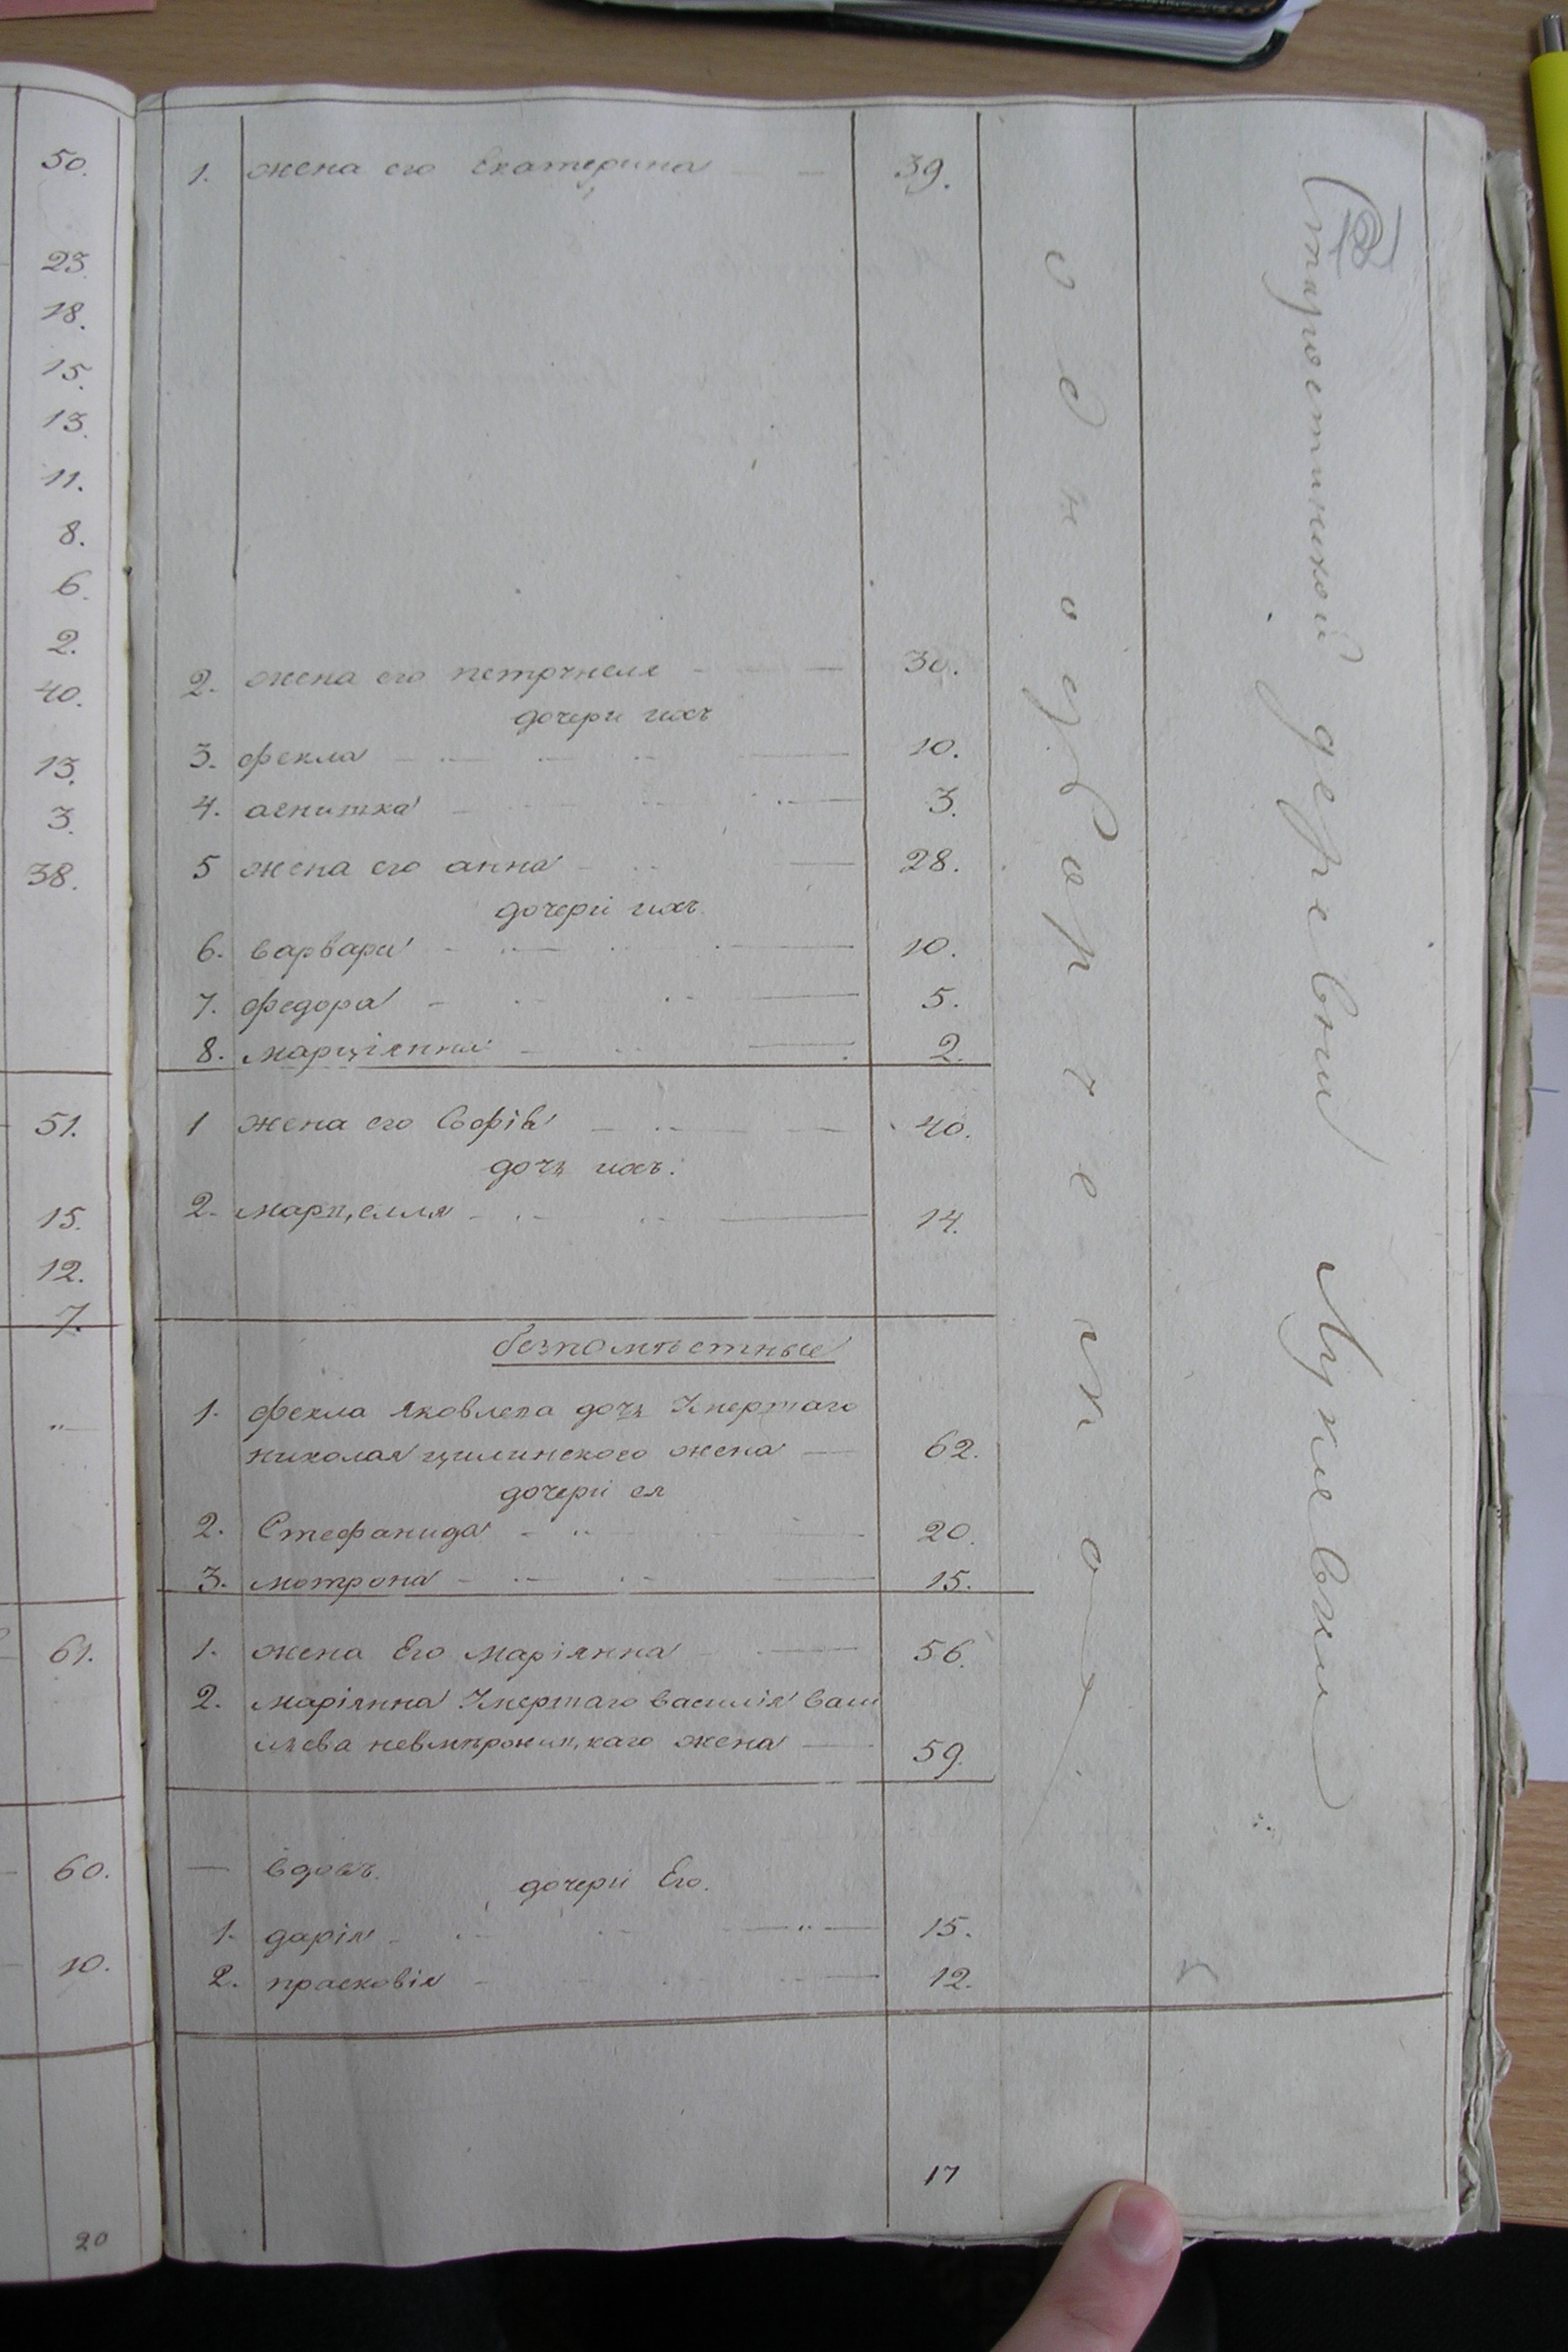 50.
23.
18.
15.
13.
11.
8.
6.
2.
40.
13.
3.
38.
51.
15.
12.
7.
61.
60.
10.
20
1. жена его Екатерина 39.
2. жена его петрунеля 30.
дочери ихъ
3. фекла 10.
4. агнитка 3.
5 жена его анна 28.
дочери ихъ.
6. варвара 10.
7. федора 5.
8. марціянна 2.
1 жена его Софія 40.
дочь ихъ.
2. марцелля 14.
безпоместные
1. фекла Яковлева дочь Умершаго
николая цилинского жена 62.
дочери ея
2. Стефанида 20.
3. мотрона 15.
1. жена Его маріянна 56.
2. маріянна Умершаго василія Васи
лѣева жена 59.
— вдовъ.
дочери Его.
1. дарія 15.
2. прасковія 12.
17
однодворческо
Старостинской деревни